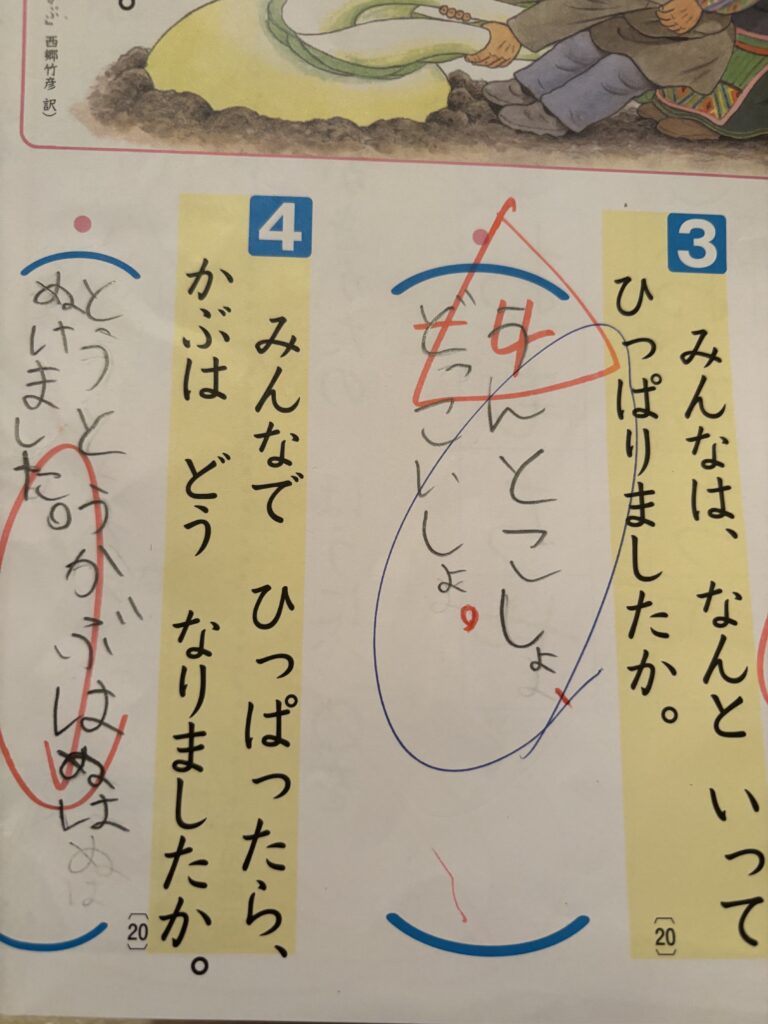 かぶ』 西郷竹彦 訳)
3
みんなは、 なんと いって
ひっぱりましたか。
〔20〕
うんとこしょ、
どっこいしょ。
4
4
みんなで ひっぱったら、
かぶは どう なりましたか。
〔20〕
とうとうかぶはぬは
ぬけました。